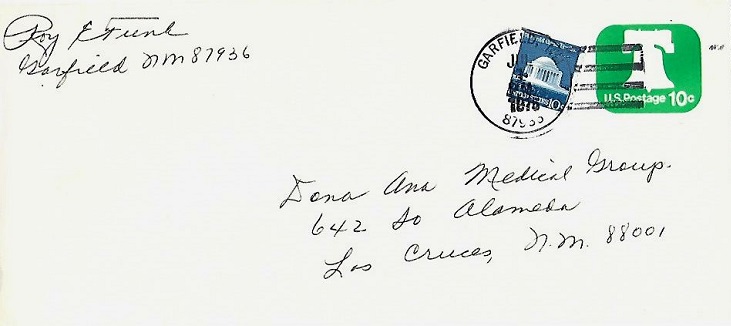 Roy E Funk
Garfield NM 87936
GARFIELD
U.S. Postage 10c
10c
Dona Ana Medical Group.
642 So Alameda
Los Cruces, N.M. 88001